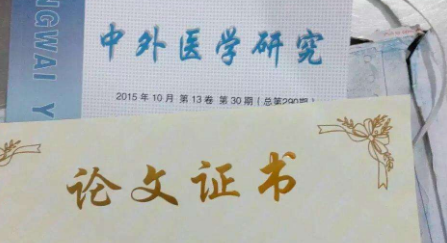 NGWAI Y
中外医学研究
2015年10月 第13卷 第30期（总第290期）
论文证书